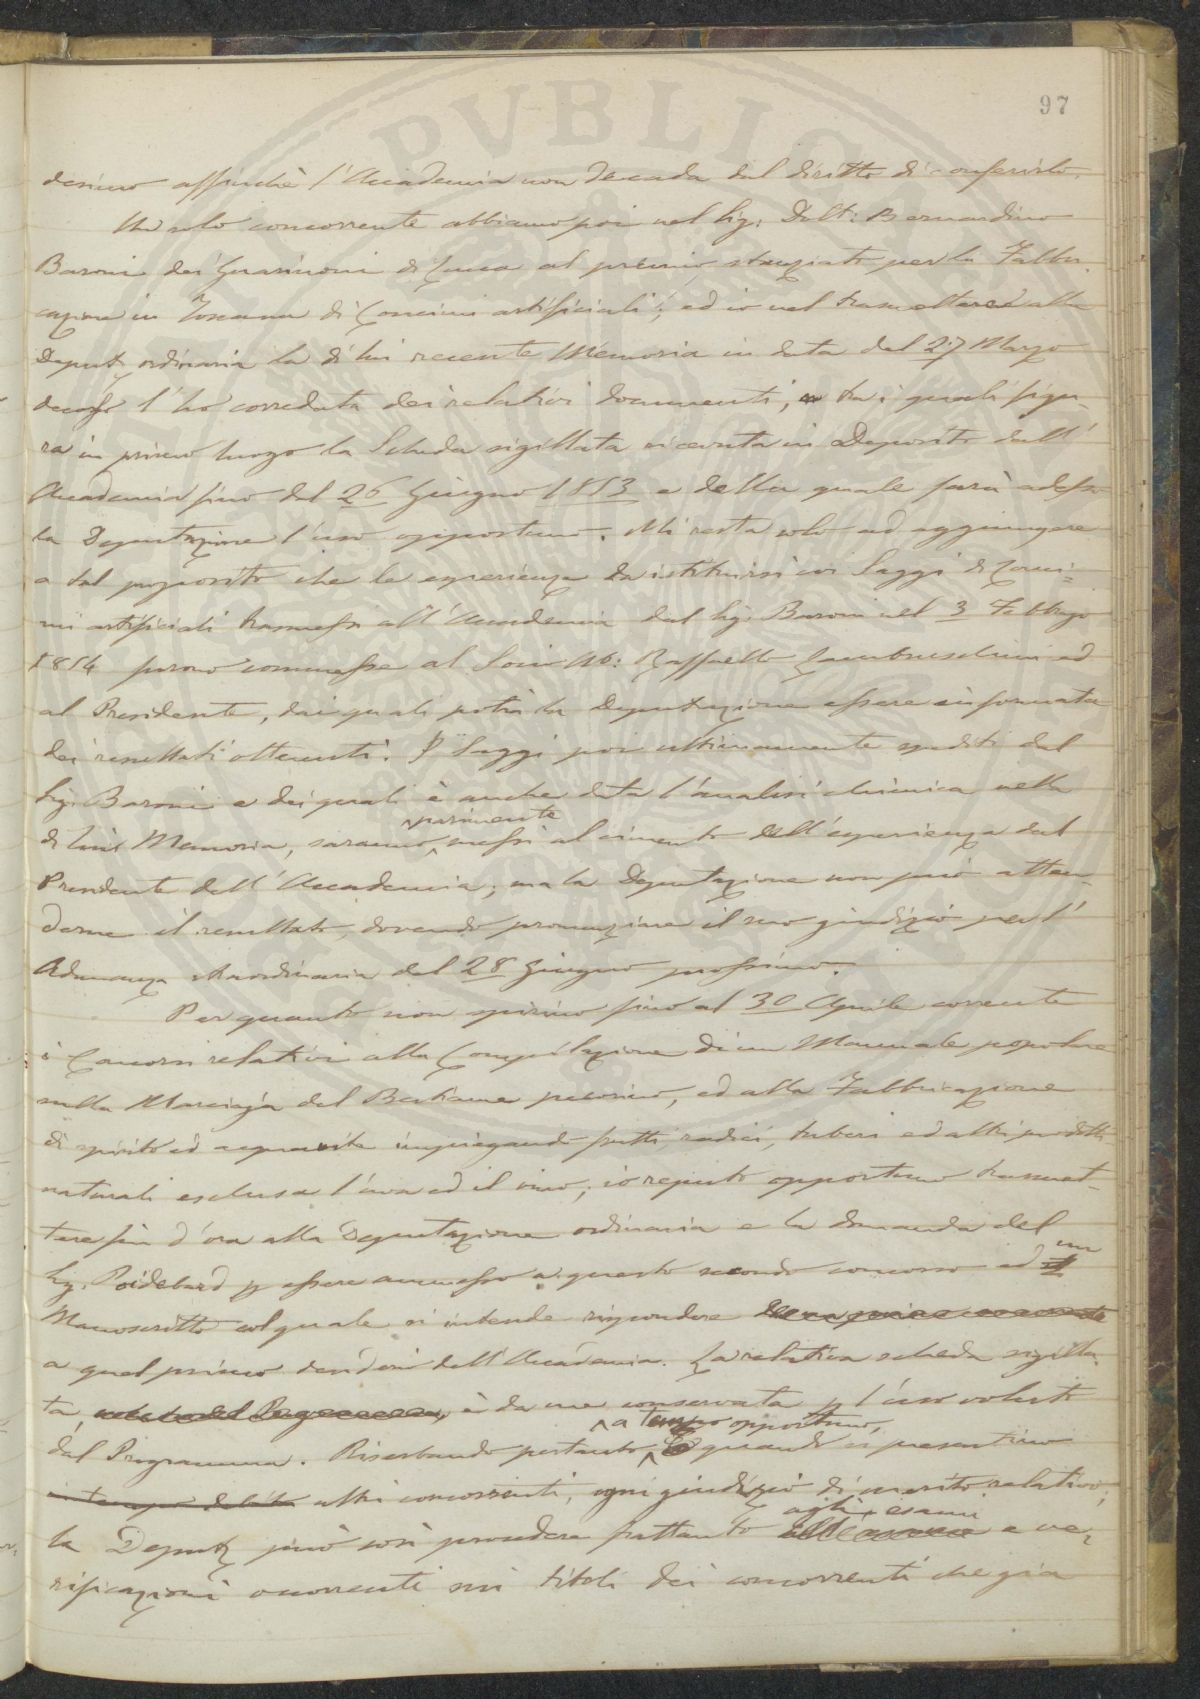 97
desimo affinchè l'Accademia non decada dal diritto di conferirlo.
Un solo concorrente abbiamo poi nel Sig: Dott: Bernardino
Baroni dei Guasimoni di Lucca al premio stanziato per la Fabbri-
cazione in Toscana di Concimi artificiali; ed io nel trasmettere alla
Deputz. ordinaria la di lui recente Memoria in data del 27 Marzo
decorso l'ho corredata dei relativi documenti, tra i quali figu-
ra in primo luogo la Scheda sigillata ricevuta in Deposito dall'
Accademia fino dal 26 Giugno 1853 e della quale farà adesso
la Deputazione l'uso opportuno. Mi resta solo ad aggiungere
a tal proposito che le esperienze da istituirsi coi Saggi di Conci=
mi artificiali trasmessi all'Accademia dal Sig. Baroni nel 3 Febbrajo
1854 furono commesse al Socio Ab: Raffaello Lambruschini ed
al Presidente, dai quali potrà la Deputazione essere informata
dei resultati ottenuti. I Saggi poi ultimamente spediti dal
Sig. Baroni e dei quali è anche data l'analisi chimica nella
parimente
di lui Memoria, saranno messi al cimento dell'esperienza dal
Presidente dell'Accademia; ma la Deputazione non può atten-
derne il resultato, dovendo pronunziare il suo giudizio per l'
Adunanza straordinaria del 28 Giugno prossimo.
Per quanto non spirino fino al 30 Aprile corrente
i Concorsi relativi alla Compilazione di un Manuale popolare
sulla Marciaja del Bestiame pecorino, ed alla Fabbricazione
di spirito ed acquavite impiegando frutti, radici, tuberi ed altri prodotti
naturali esclusa l'uva ed il vino; io reputo opportuno trasmet-
tere fin d'ora alla Deputazione ordinaria e la domanda del
un
Sig. Poidebard p essere ammesso a questo secondo concorso ed il
Manoscritto col quale si intende rispondere
a quel primo desiderio dell'Accademia. La relativa scheda sigilla-
ta, è da me conservata p l'uso voluto
a tempo opportuno,
dal Programma. Riserbando pertanto, e quando si presentino
in tempo debito altri concorrenti, ogni giudizio di merito relativo;
agli esami
la Deputz può così procedere frattanto alle e ve-
rificazioni occorrenti sui titoli dei concorrenti che già